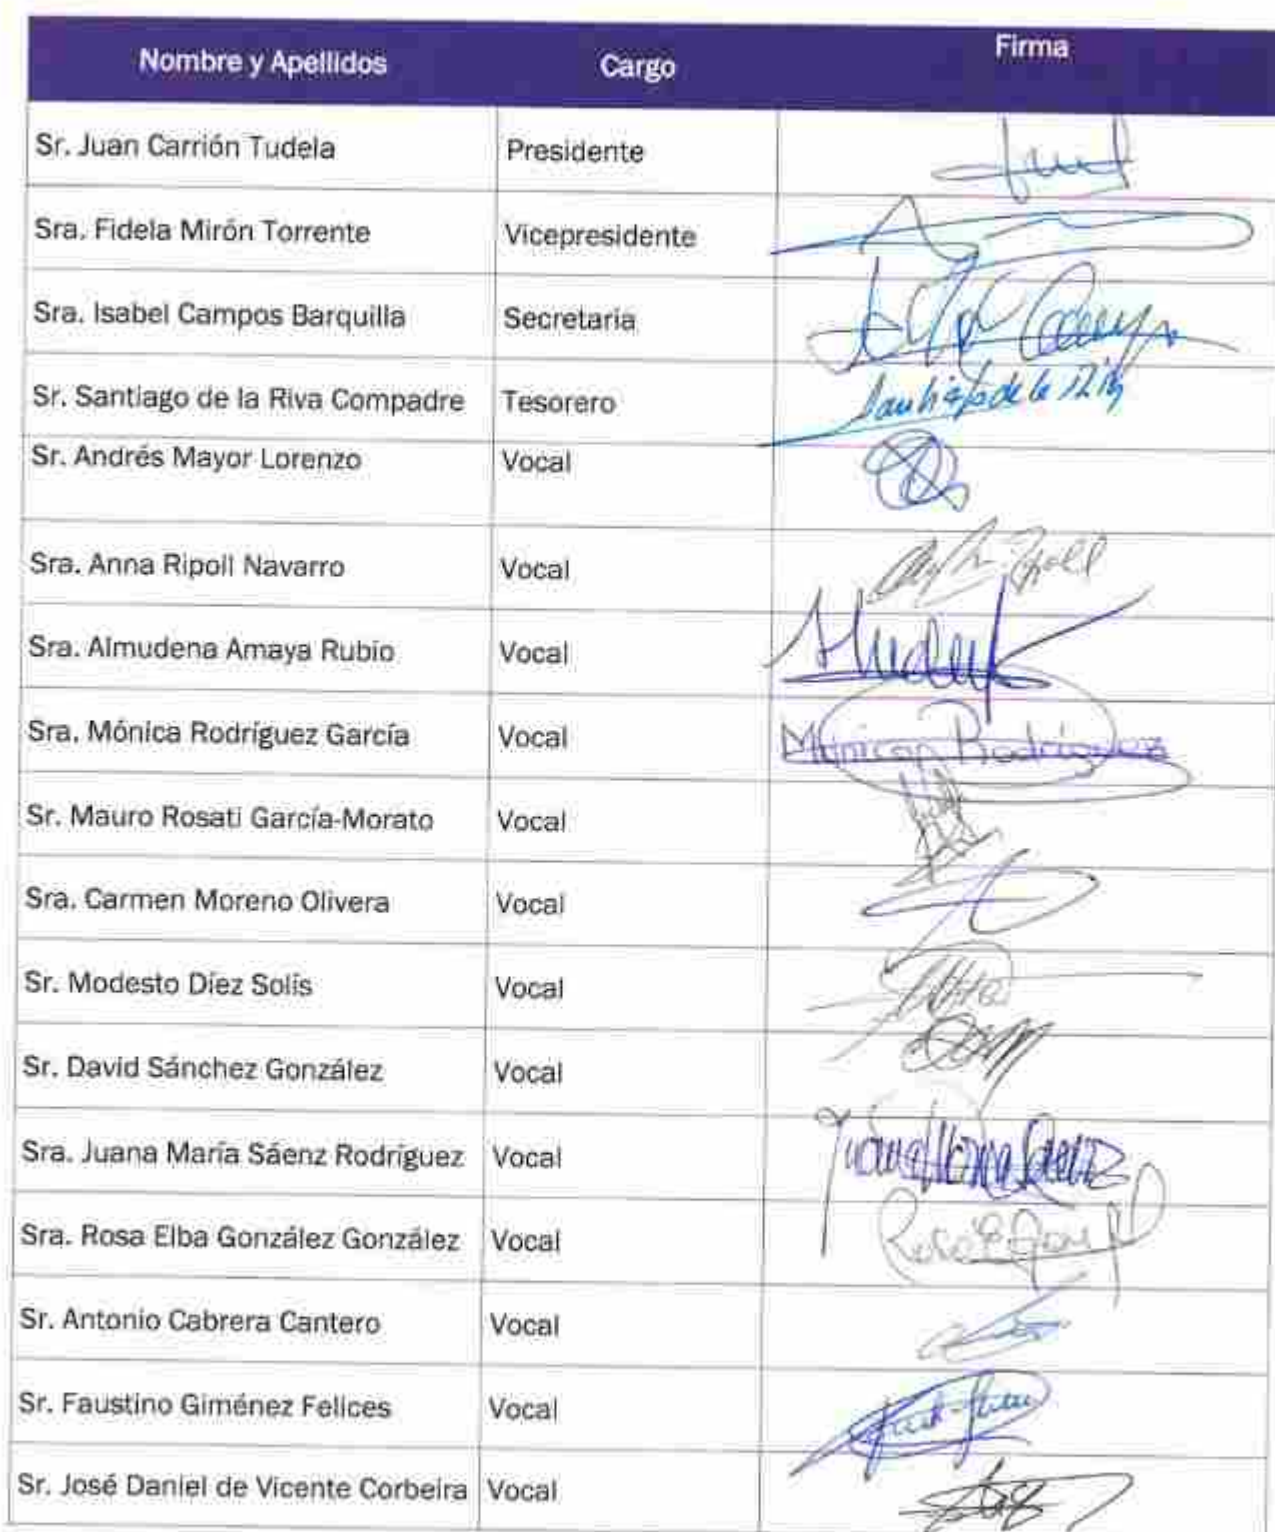 Nombre y Apellidos Cargo Firma
Sr. Juan Carrión Tudela Presidente
Sra. Fidela Mirón Torrente Vicepresidente
Sra. Isabel Campos Barquilla Secretaria
Sr. Santiago de la Riva Compadre Tesorero Santiago de la Riva
Sr. Andrés Mayor Lorenzo Vocal
Sra. Anna Ripoll Navarro Vocal
Sra. Almudena Amaya Rubio Vocal
Sra. Mónica Rodríguez García Vocal Monica Rodriguez
Sr. Mauro Rosati García-Morato Vocal
Sra. Carmen Moreno Olivera Vocal
Sr. Modesto Díez Solís Vocal
Sr. David Sánchez González Vocal
Sra. Juana María Sáenz Rodríguez Vocal Juana María Saenz
Sra. Rosa Elba González González Vocal
Sr. Antonio Cabrera Cantero Vocal
Sr. Faustino Giménez Felices Vocal
Sr. José Daniel de Vicente Corbeira Vocal